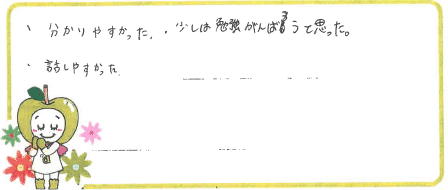 ・分かりやすかった。・少しは勉強がんばろうて思った。
・話しやすかった